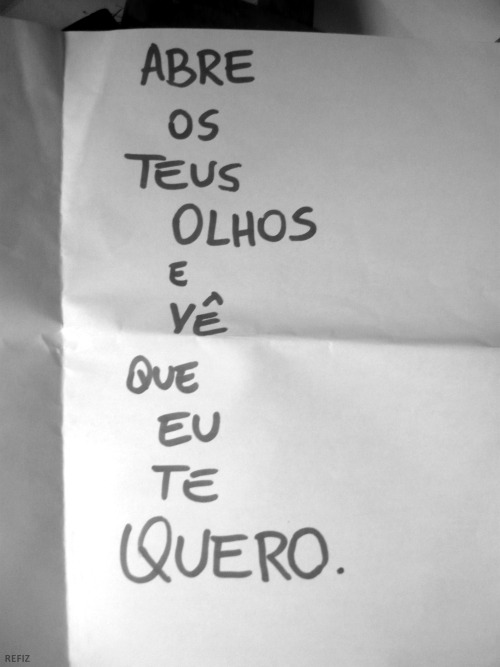 ABRE
OS
TEUS
OLHOS
E
VÊ
QUE
EU
TE
QUERO.
REFIZ